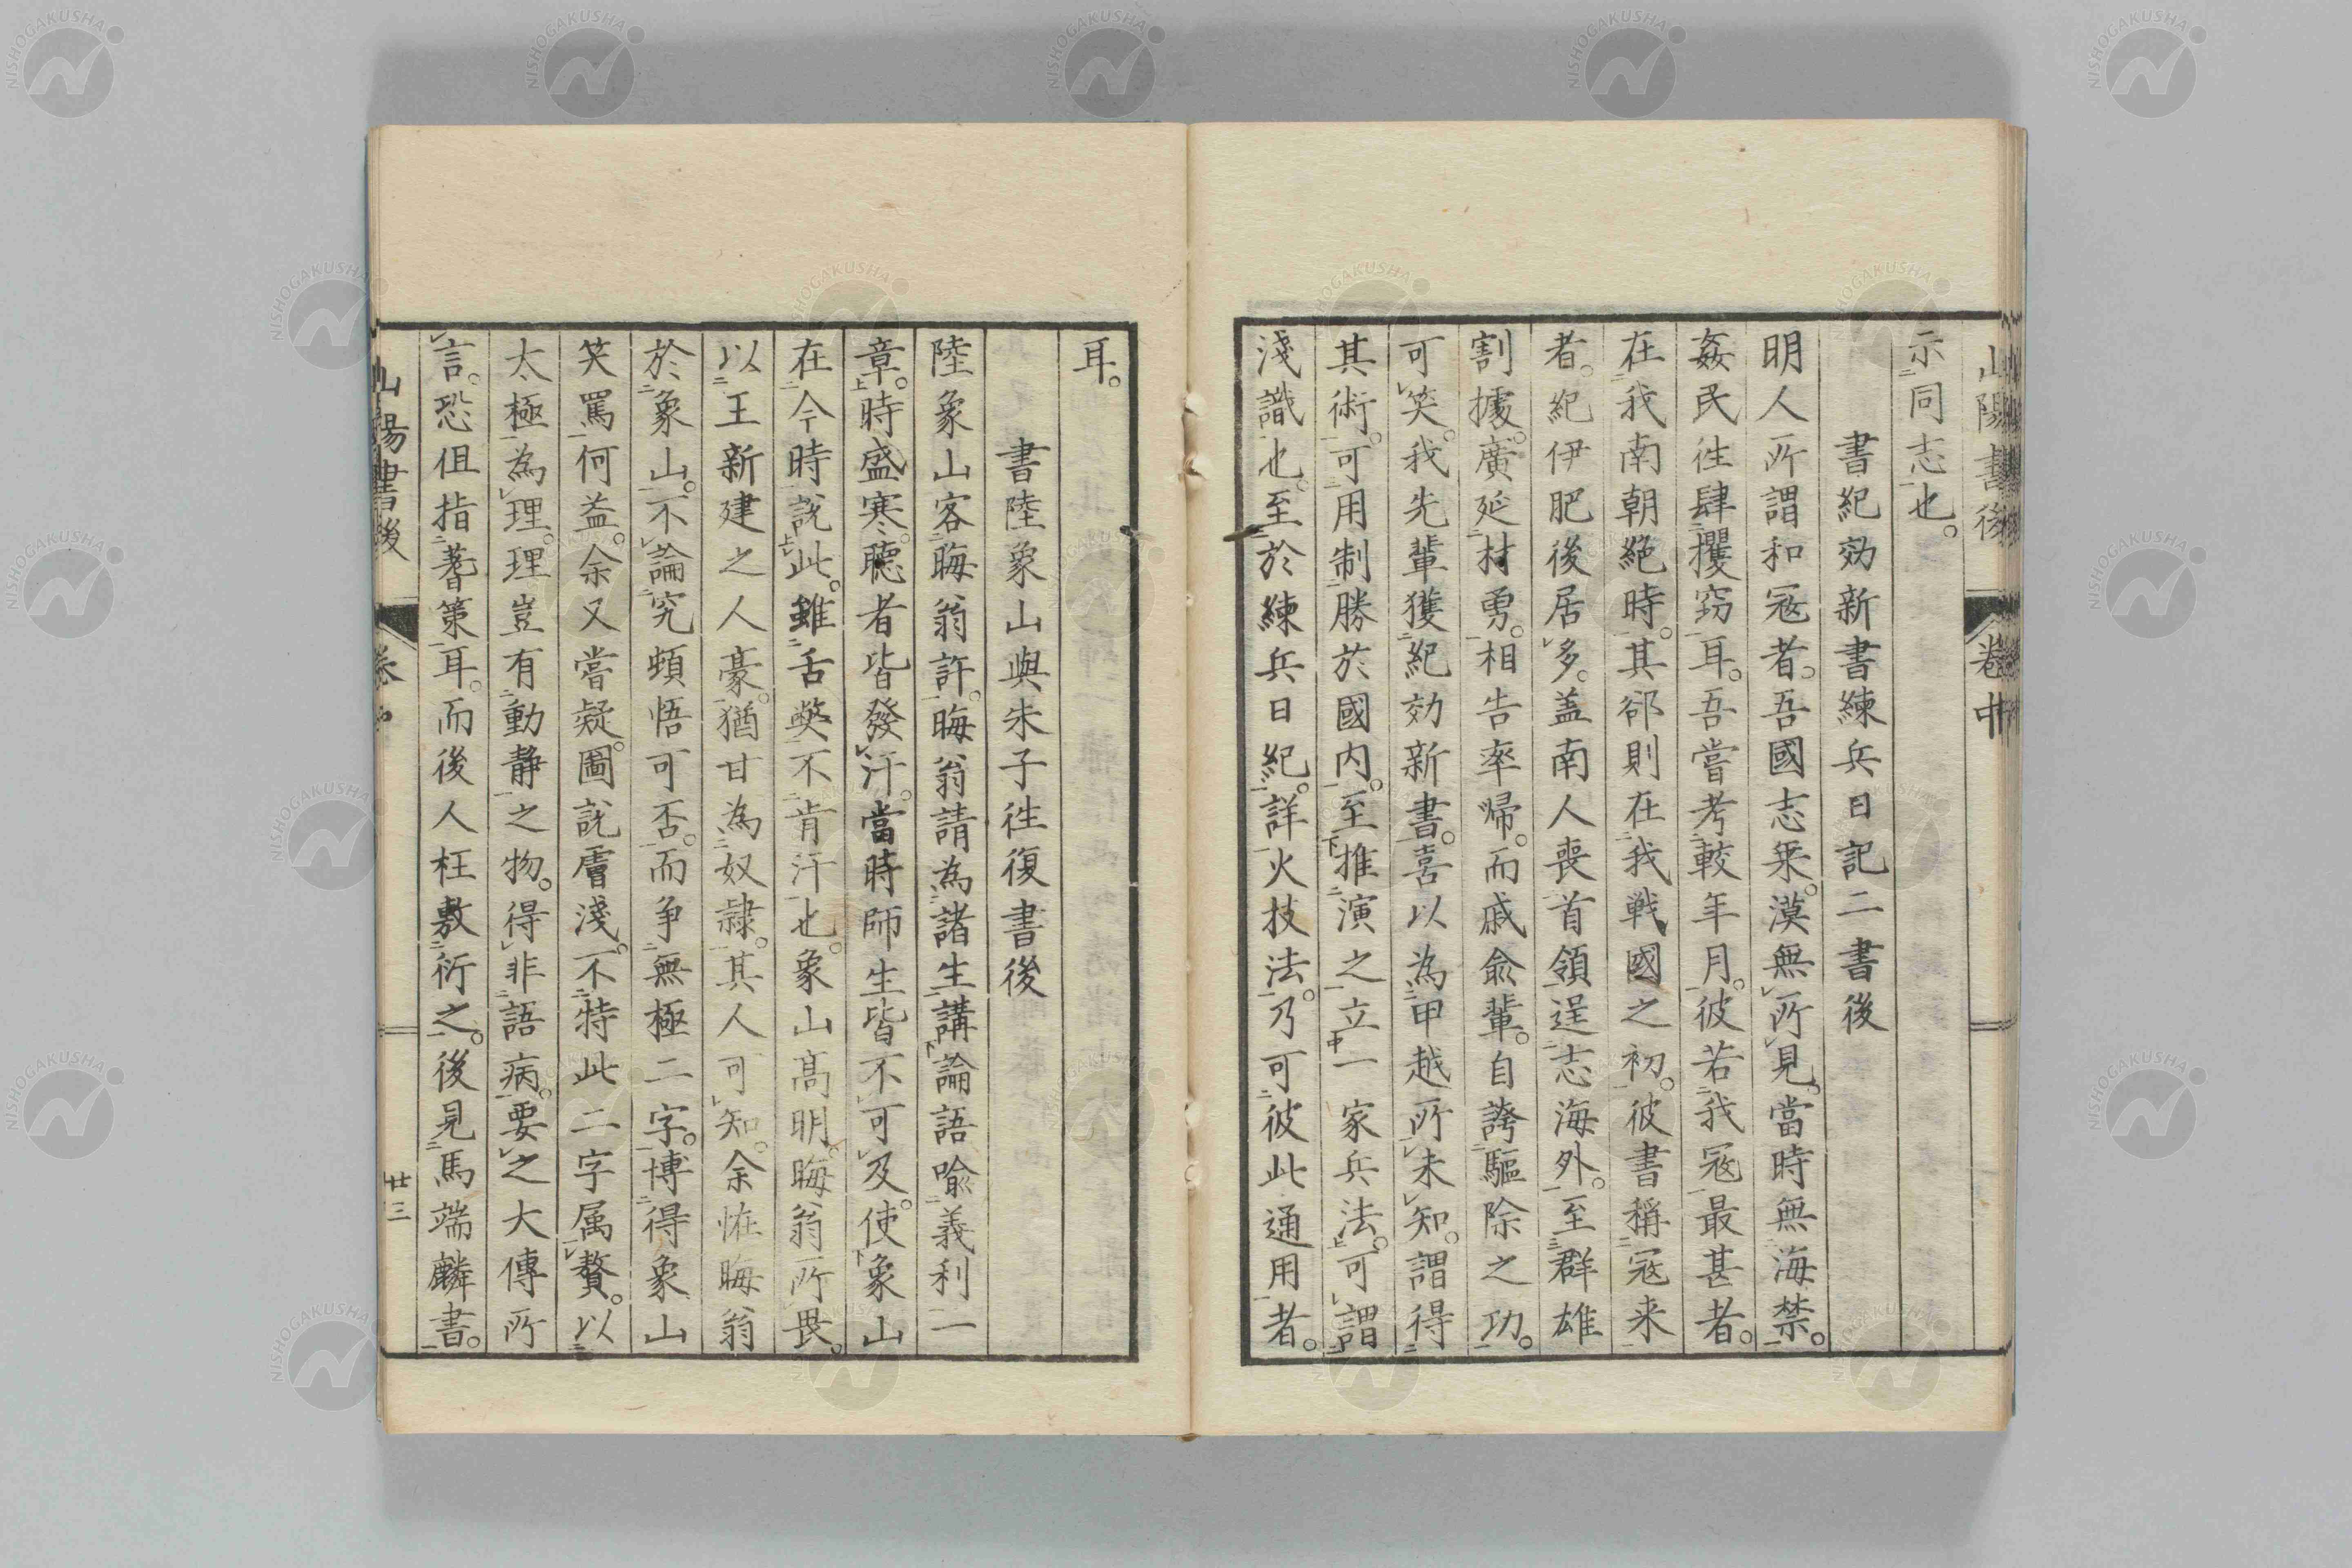 山陽書後 卷中
示同志也。
書紀効新書練兵日記二書後
明人所謂和冦者。吾國志乘。漠無所見。當時無海禁。
姦民徃肆攫窃耳。吾嘗考較年月。彼若我冦最甚者。
在我南朝絶時。其郤則在我戦國之初。彼書稱冦来
者。紀伊肥後居多。盖南人喪首領逞志海外。至群雄
割據。廣延材勇。相告率帰。而戚兪輩。自誇驅除之功。
可笑。我先輩獲紀効新書。喜以為甲越所未知。謂得
其術。可用制勝於國内。至推演之立一家兵法。可謂
淺識也。至於練兵日紀。詳火技法。乃可彼此通用者。
耳。
書陸象山與朱子徃復書後
陸象山客晦翁許。晦翁請為諸生講論語喩義利一
章。時盛寒。聴者皆發汗。當時師生皆不可及。使象山
在今時説此。雖舌獘不肯汗也。象山高明。晦翁所畏。
以王新建之人豪。猶甘為奴隷。其人可知。余恠晦翁
於象山。不論究頓悟可否。而争無極二字。博得象山
笑罵何益。余又嘗疑。圖説膚淺。不特此二字属贅。以
太極為理。理豈有動静之物。得非語病。要之大傳所
言。恐伹指蓍策耳。而後人枉敷衍之。後見馬端麟書。
山陽書後 卷中 廿三
NISHOGAKUSHA